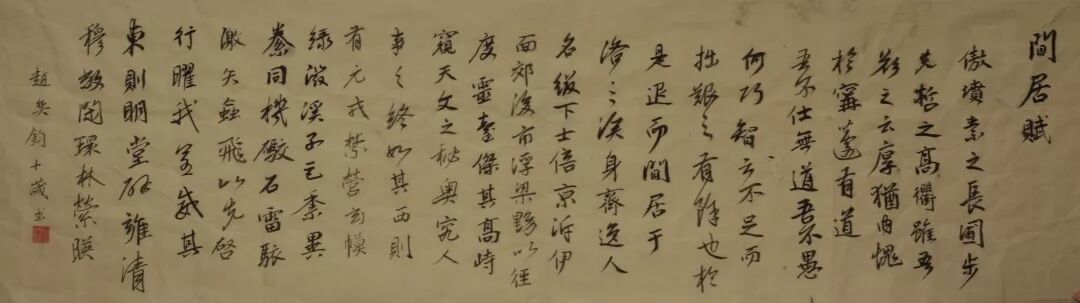 間居賦
傲墳素之長圃步
先哲之高衢雖吾
顏之云厚猶內愧
於寗蘧有道
吾不仕無道吾不愚
何巧智之不足而
拙艱之有餘也於
是退而間居于
洛之涘身齊逸人
名綴下士倍京泝伊
面郊後市浮梁黝以徑
度靈臺傑其高峙
窺天文之秘奧究人
事之終始其西則
有元戎禁營玄幙
綠徽溪子巨黍異
絭同機礮石雷駭
激矢蝱飛以先啓
行曜我皇威其
東則明堂辟雍清
穆敞閑環林縈暎
趙英鈞十歲書